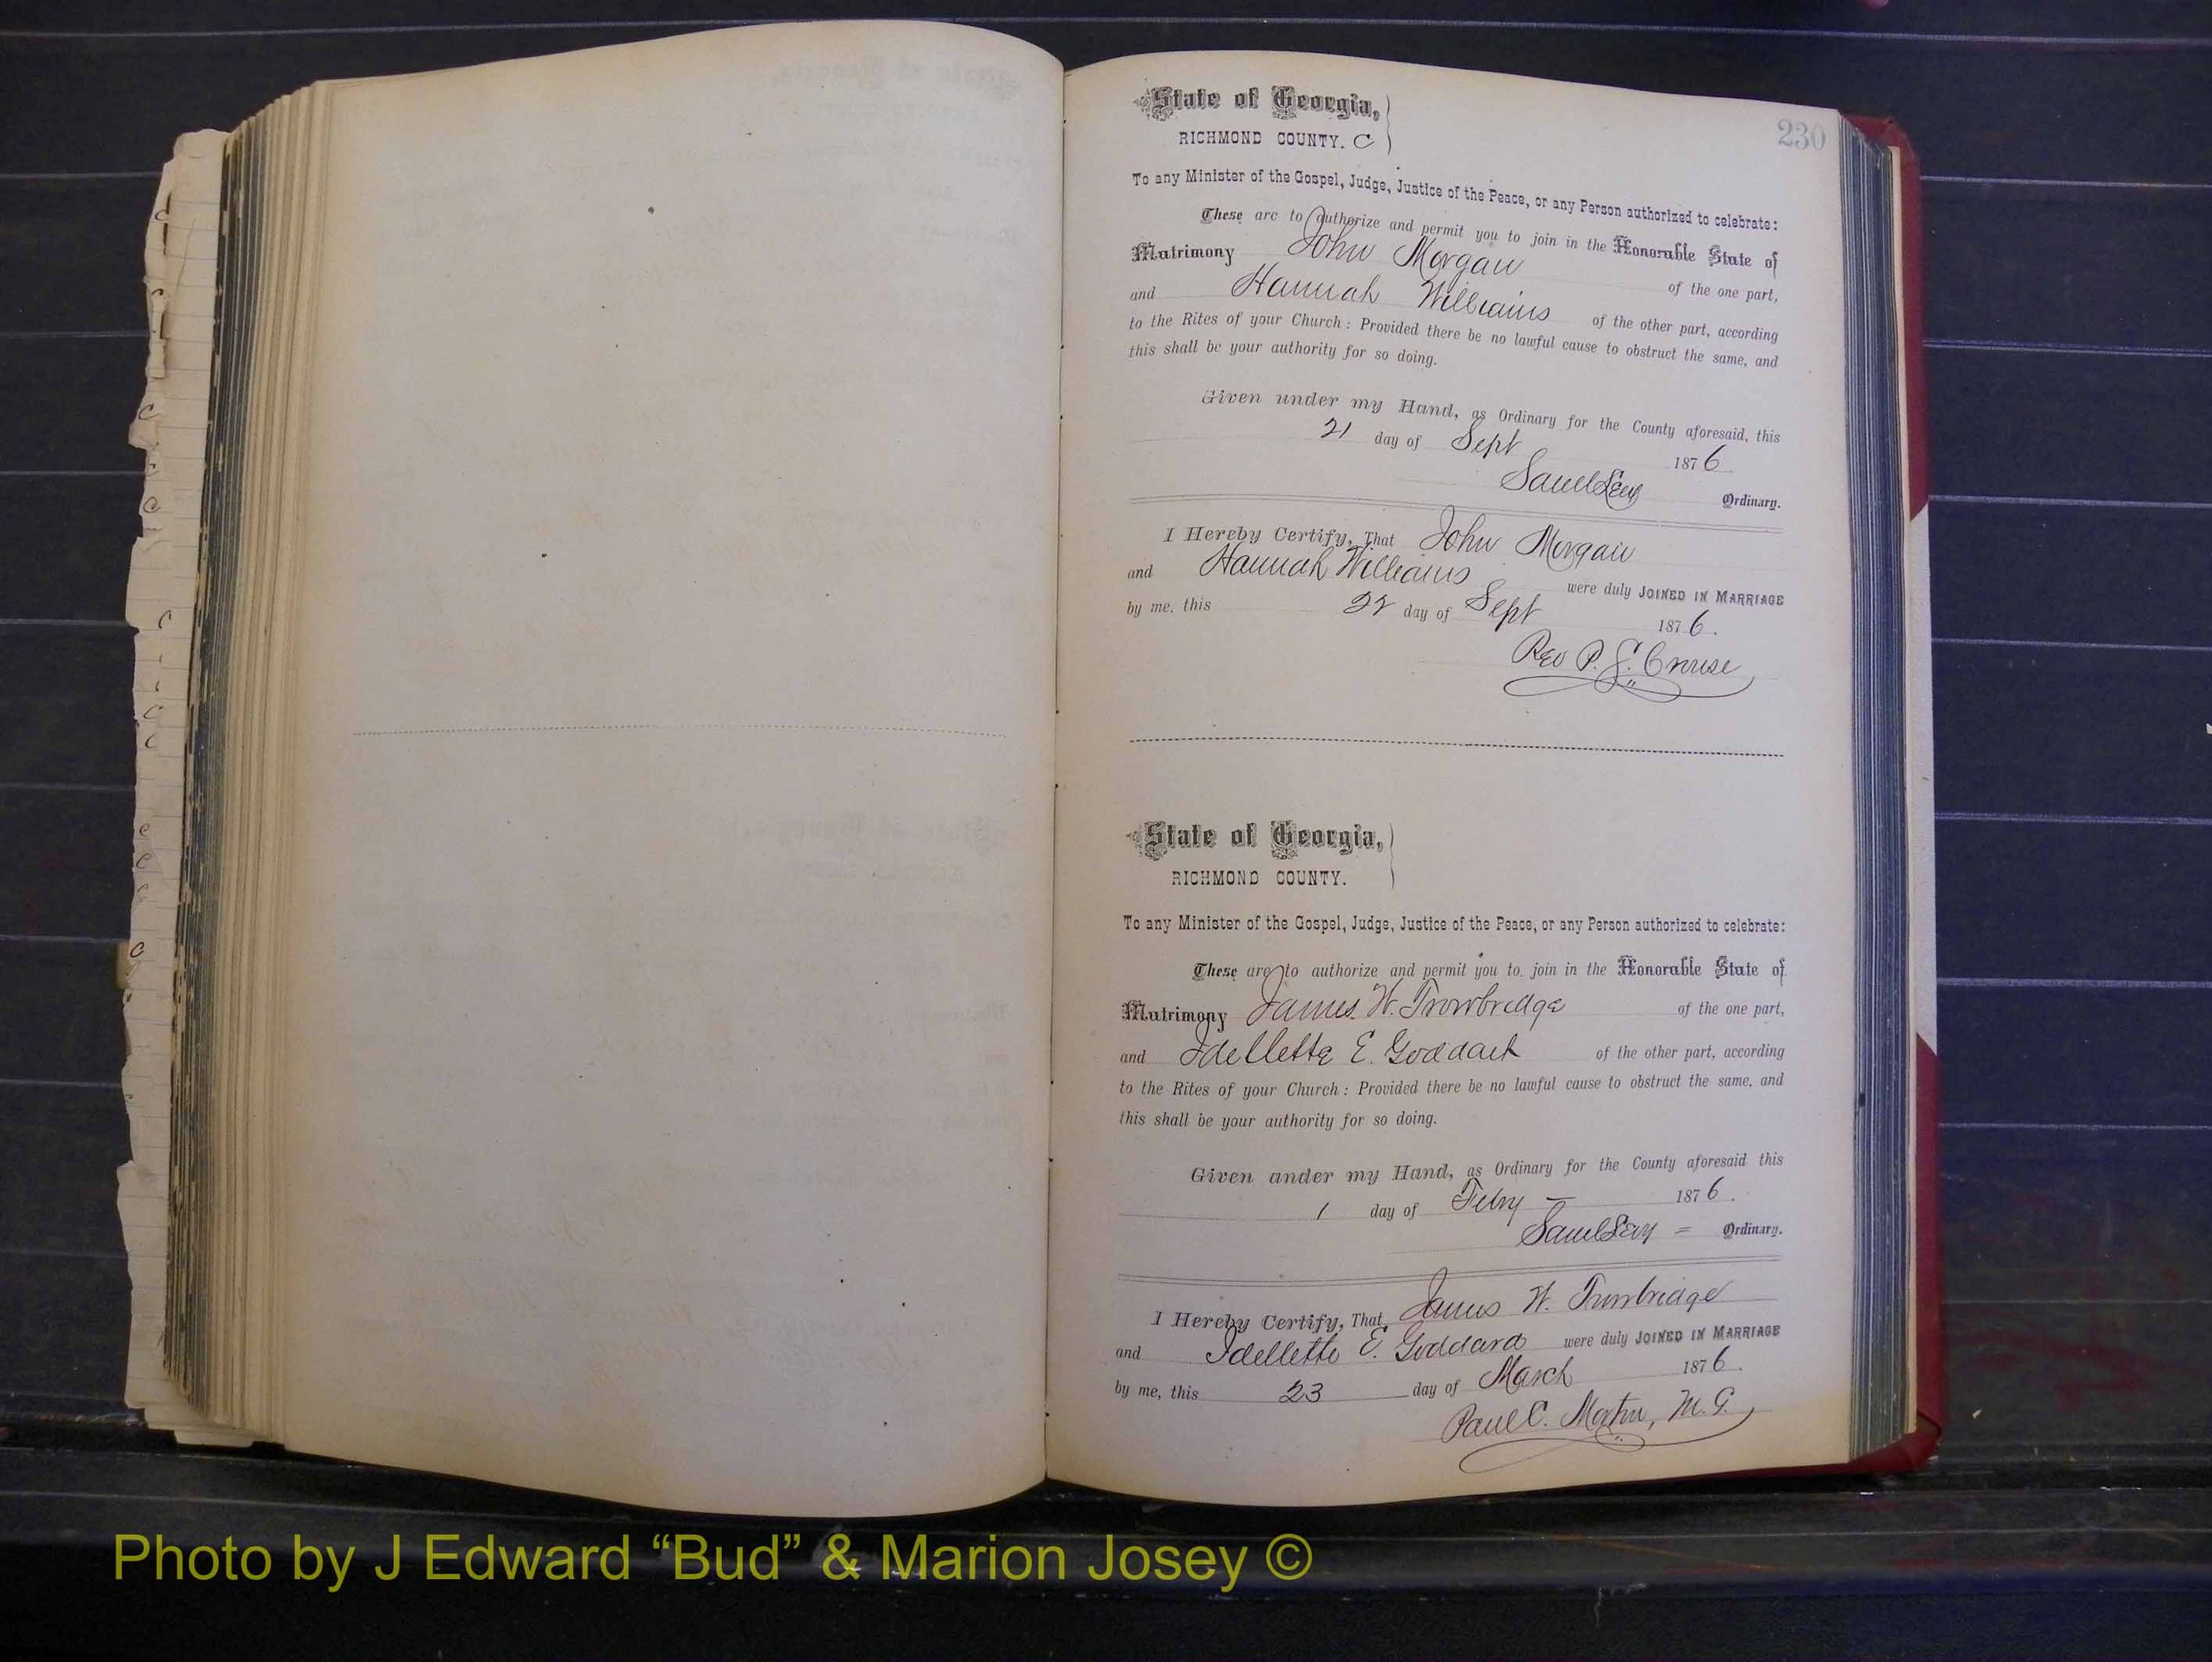 230
State of Georgia,
RICHMOND COUNTY. C
To any Minister of the Gospel, Judge, Justice of the Peace, or any Person authorized to celebrate:
These are to authorize and permit you to join in the Honorable State of
Matrimony John Morgan of the one part,
and Hannah Williams of the other part, according
to the Rites of your Church: Provided there be no lawful cause to obstruct the same, and
this shall be your authority for so doing.
Given under my Hand, as Ordinary for the County aforesaid, this
21 day of Sept 1876
Saml Levy Ordinary.
I Hereby Certify, That John Morgan
and Hannah Williams were duly JOINED IN MARRIAGE
by me, this 22 day of Sept 1876.
Rev P. S. Crouse
State of Georgia,
RICHMOND COUNTY.
To any Minister of the Gospel, Judge, Justice of the Peace, or any Person authorized to celebrate:
These are to authorize and permit you to join in the Honorable State of
Matrimony James W. Trowbridge of the one part,
and Idellette E. Goddart of the other part, according
to the Rites of your Church: Provided there be no lawful cause to obstruct the same, and
this shall be your authority for so doing.
Given under my Hand, as Ordinary for the County aforesaid this
1 day of Feby — 1876.
Saml Levy = Ordinary.
I Hereby Certify, That James W. Trowbridge
and Idellette E. Goddard were duly JOINED IN MARRIAGE
by me, this 23 day of March 1876.
Paul C. Martin, M. G.
Photo by J Edward “Bud” & Marion Josey ©